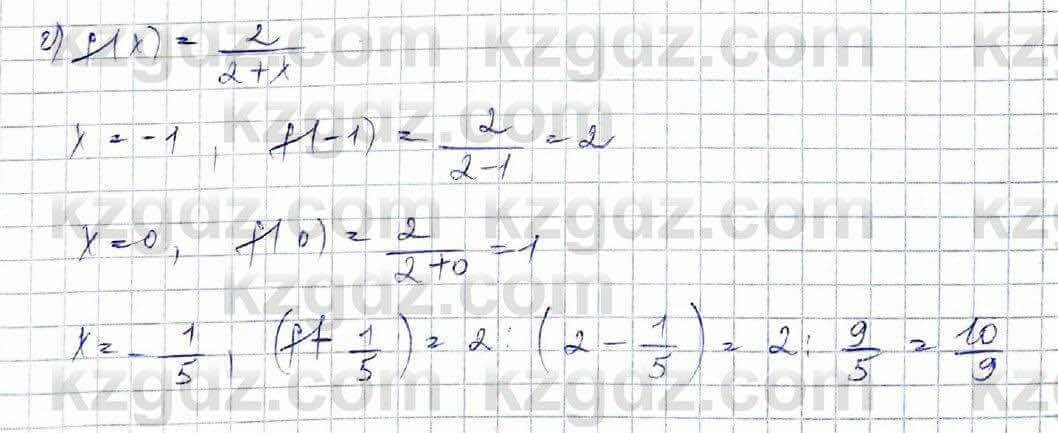 г) f(x) = 2/(2+x)
x = -1, f(-1) = 2/(2-1) = 2
x=0, f(0) = 2/(2+0) = 1
x = -1/5, (f(-1/5) = 2 : (2 - 1/5) = 2 : 9/5 = 10/9
kzgdz.com kzgdz.com kzgdz.com
kzgdz.com
kzgdz.com kzgdz.com kzgdz.com
kzgdz.com
kzgdz.com kzgdz.com kzgdz.com